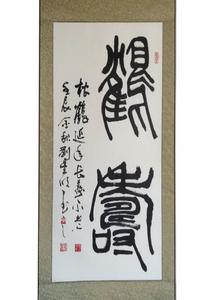 鶴壽
松鶴延年長壽不老
壬辰金秋劉